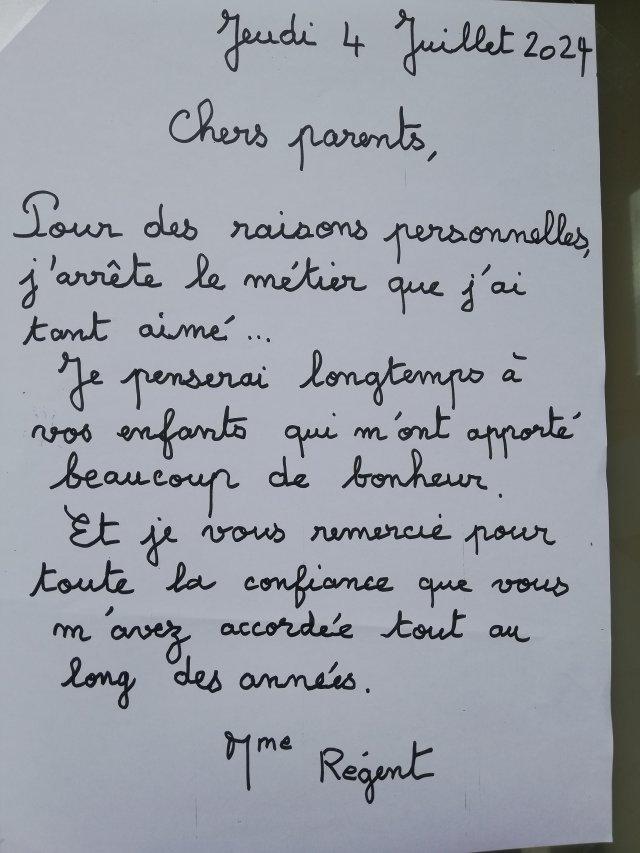 Jeudi 4 Juillet 2024
Chers parents,
Pour des raisons personnelles,
j'arrête le métier que j'ai
tant aimé...
Je penserai longtemps à
vos enfants qui m'ont apporté
beaucoup de bonheur.
Et je vous remercie pour
toute la confiance que vous
m'avez accordée tout au
long des années.
Mme Régent